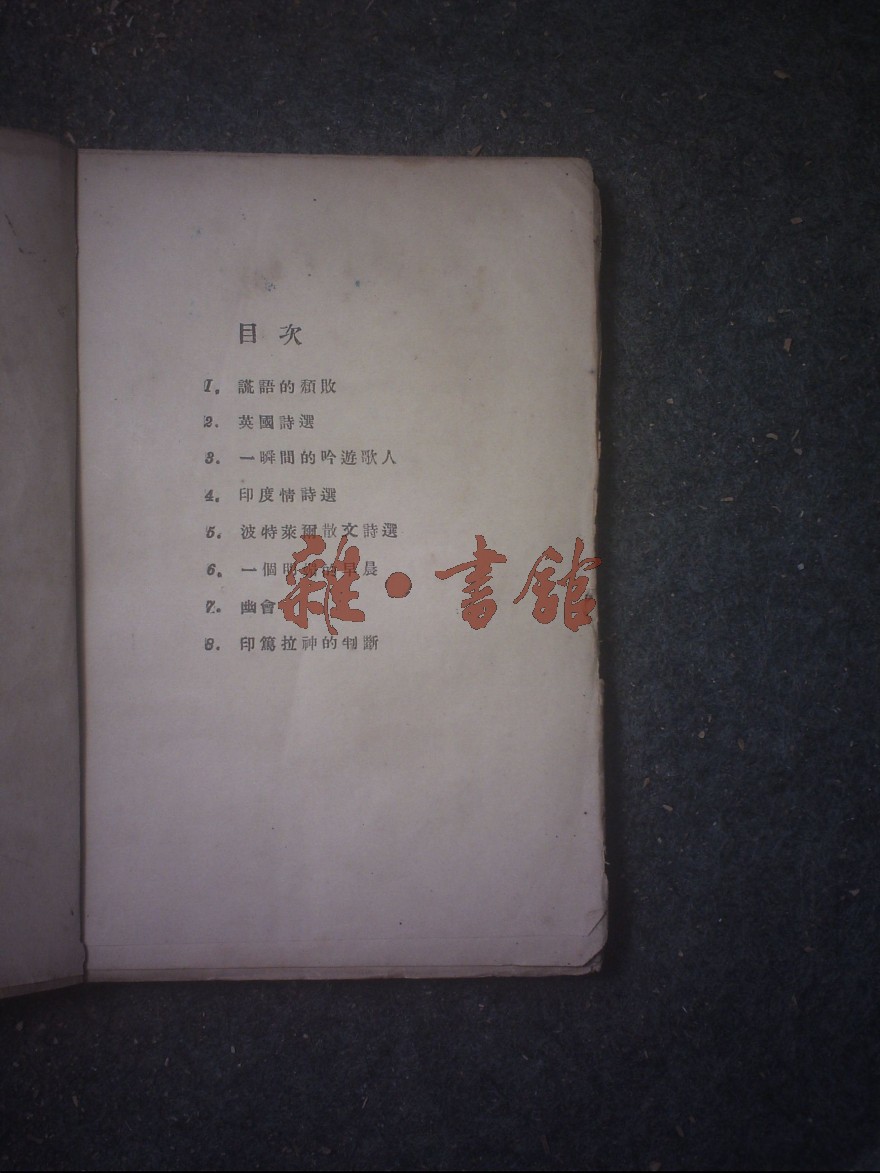 目次
1. 謊語的頹敗
2. 英國詩選
3. 一瞬間的吟遊歌人
4. 印度情詩選
5. 波特萊爾散文詩選
6. 一個明亮的早晨
7. 幽會
8. 印篤拉神的判斷
雜·書館